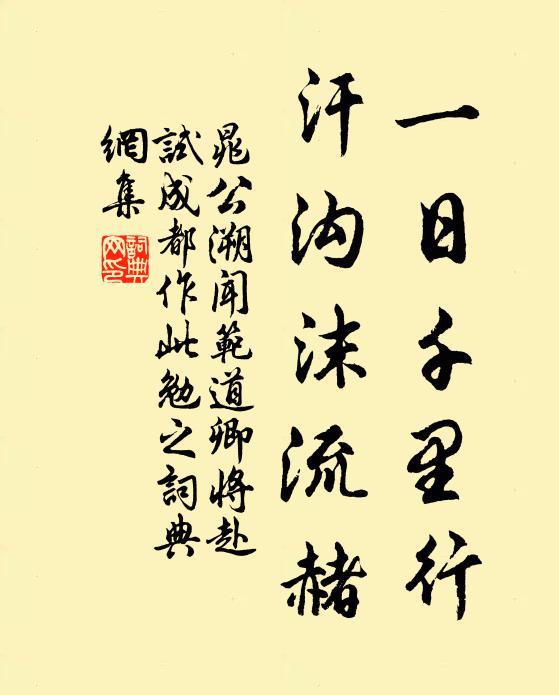 一日千里行
汗沟沫流赭
晁公溯闻範道卿將赴
試成都作此勉之詞典
網集
詞典網印